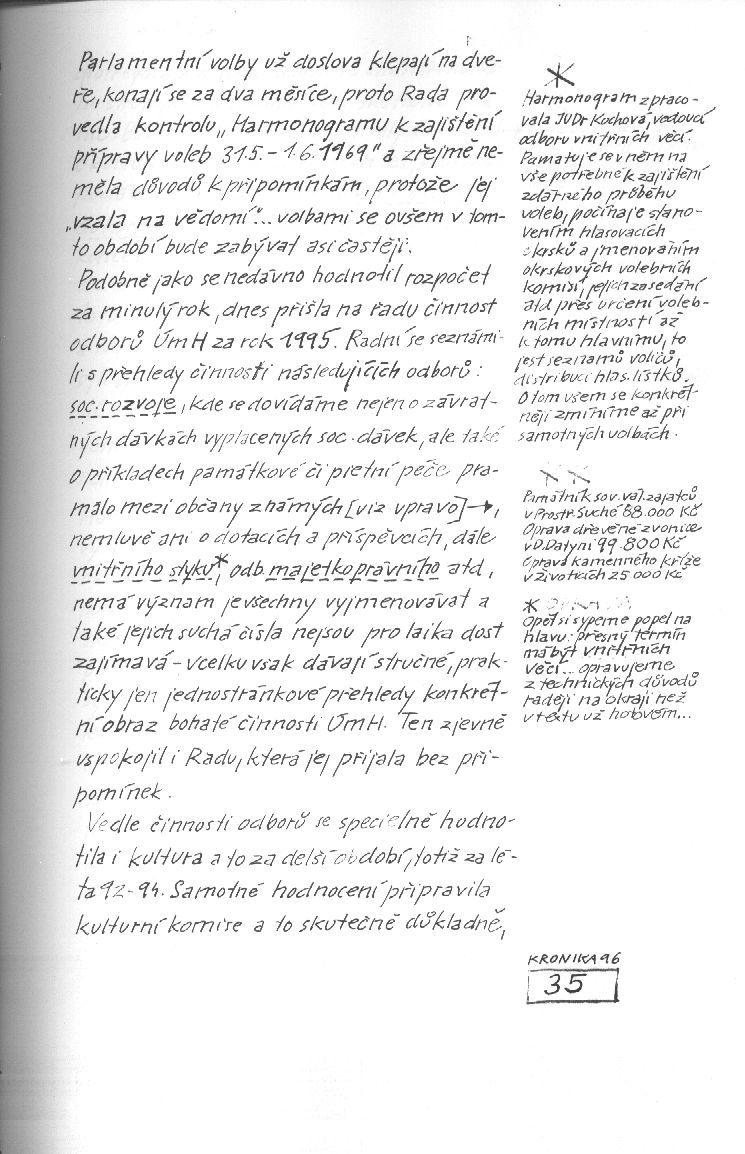 Parlamentní volby už doslova klepají na dve-
ře, konají se za dva měsíce, proto Rada pro-
vedla kontrolu „Harmonogramu k zajištění
přípravy voleb 31.5. - 1.6.1969" a zřejmě ne-
měla důvodů k připomínkám, protože jej
„vzala na vědomí"... volbami se ovšem v tom-
to období bude zabývat asi častěji.
Podobně jako se nedávno hodnotil rozpočet
za minulý rok, dnes přišla na řadu činnost
odborů ÚmH za rok 1995. Radní se seznámi-
li s přehledy činnosti následujících odborů:
soc. rozvoje, kde se dovídáme nejen o závrat-
ných dávkách vyplacených soc. dávek, ale také
o příkladech památkové či pietní péče pra-
málo mezi občany známých [viz vpravo]→,
nemluvě ani o dotacích a příspěvcích, dále
vnitřního styku*, odb. majetkoprávního atd,
nemá význam je všechny vyjmenovávat a
také jejich suchá čísla nejsou pro laika dost
zajímavá - vcelku však dávají stručné, prak-
ticky jen jednostránkové přehledy konkrét-
ní obraz bohaté činnosti ÚmH. Ten zjevně
uspokojil i Radu, která jej přijala bez při-
pomínek.
Vedle činnosti odborů se specielně hodno-
tila i kultura a to za delší období, totiž za lé-
ta 92-94. Samotné hodnocení připravila
kulturní komise a to skutečně důkladně,
*
Harmonogram zpraco-
vala JUDr Kochová, vedoucí
odboru vnitřních věcí.
Pamatuje se v něm na
vše potřebné k zajištění
zdárného průběhu
voleb, počínaje stano-
vením hlasovacích
okrsků a jmenováním
okrskových volebních
komisí, jejich zasedání
atd přes určení voleb-
ních místností až
k tomu hlavnímu, to
jest seznamů voličů,
distribuci hlas. lístků.
O tom všem se konkrét-
něji zmíníme až při
samotných volbách.
* *
Památník sov. vál. zajatců
v Prostř. Suché 88.000 Kč
Oprava dřevěné zvonice
v D. Datyni 99.800 Kč
Oprava kamenného kříže
v Životicích 25.000 Kč
*
Opět si sypeme popel na
hlavu: přesný termín
má být vnitřních
věcí... opravujeme
z technických důvodů
raději na okraji než
v textu už hotovém...
KRONIKA 96
35